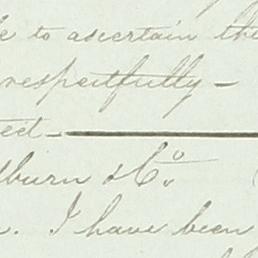 e to ascertain the
respectfully –
ect —
burn & Co.
. I have been